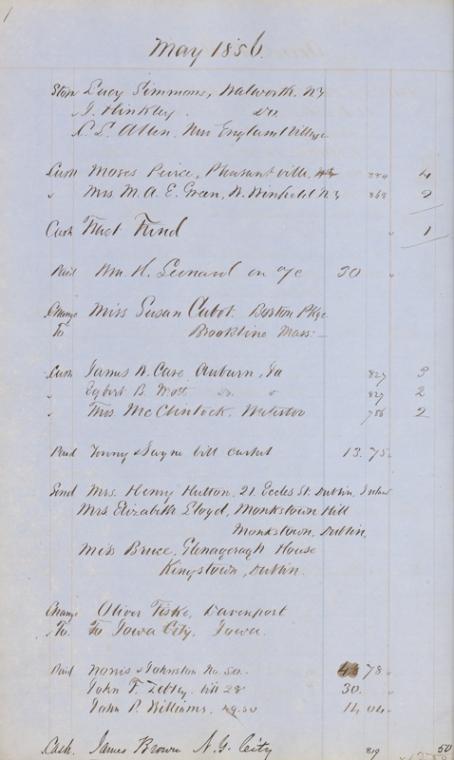 1
May 1856.
Stop Lucy Simmons, Walworth, NY
J. Hinkley. Do.
C. L. Allen, New England Village
Cash Moses Peirce, Pleasantville, 4
" Mrs. M. A. E. Green, W. Winfield NY 868 2
Cash Tract Fund " 1
Paid Wm. H. Leonard on a/c 30 "
Change Miss Susan Cabot. Boston Pkge
To Brookline Mass:
Cash James W. Case Auburn, 827 3
" Egbert B. Mott Do. " 827 2
" Thos. McClintock, Waterloo 786 2
Paid bill 13.75.
Send Mrs. Henry Hutton, 21. Eccles St. Dublin,
Mrs Elizabeth Lloyd, Monkstown Hill
Monkstown, Dublin,
Miss Bruce, Glenageragh House
Kingstown, Dublin.
Change Oliver Fiske, Davenport
To. To Iowa City, Iowa.
Paid Norris & Johnston No. 50. 78. "
John F. bill 28 30. "
John P. Williams, 14 04. "
Cash. James Brown N.Y. City 819 50